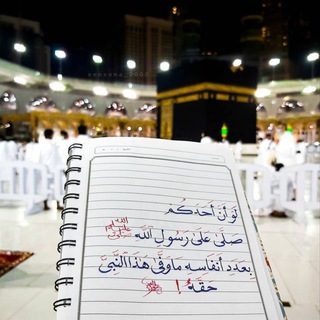 لَوْ أَنَّ أَحَدَكُمْ
صَلَّى عَلَى رَسُولِ اللَّهِ ﷺ
بِعَدَدِ أَنْفَاسِهِ مَا وَفَّى هَذَا النَّبِيَّ
حَقَّهُ !